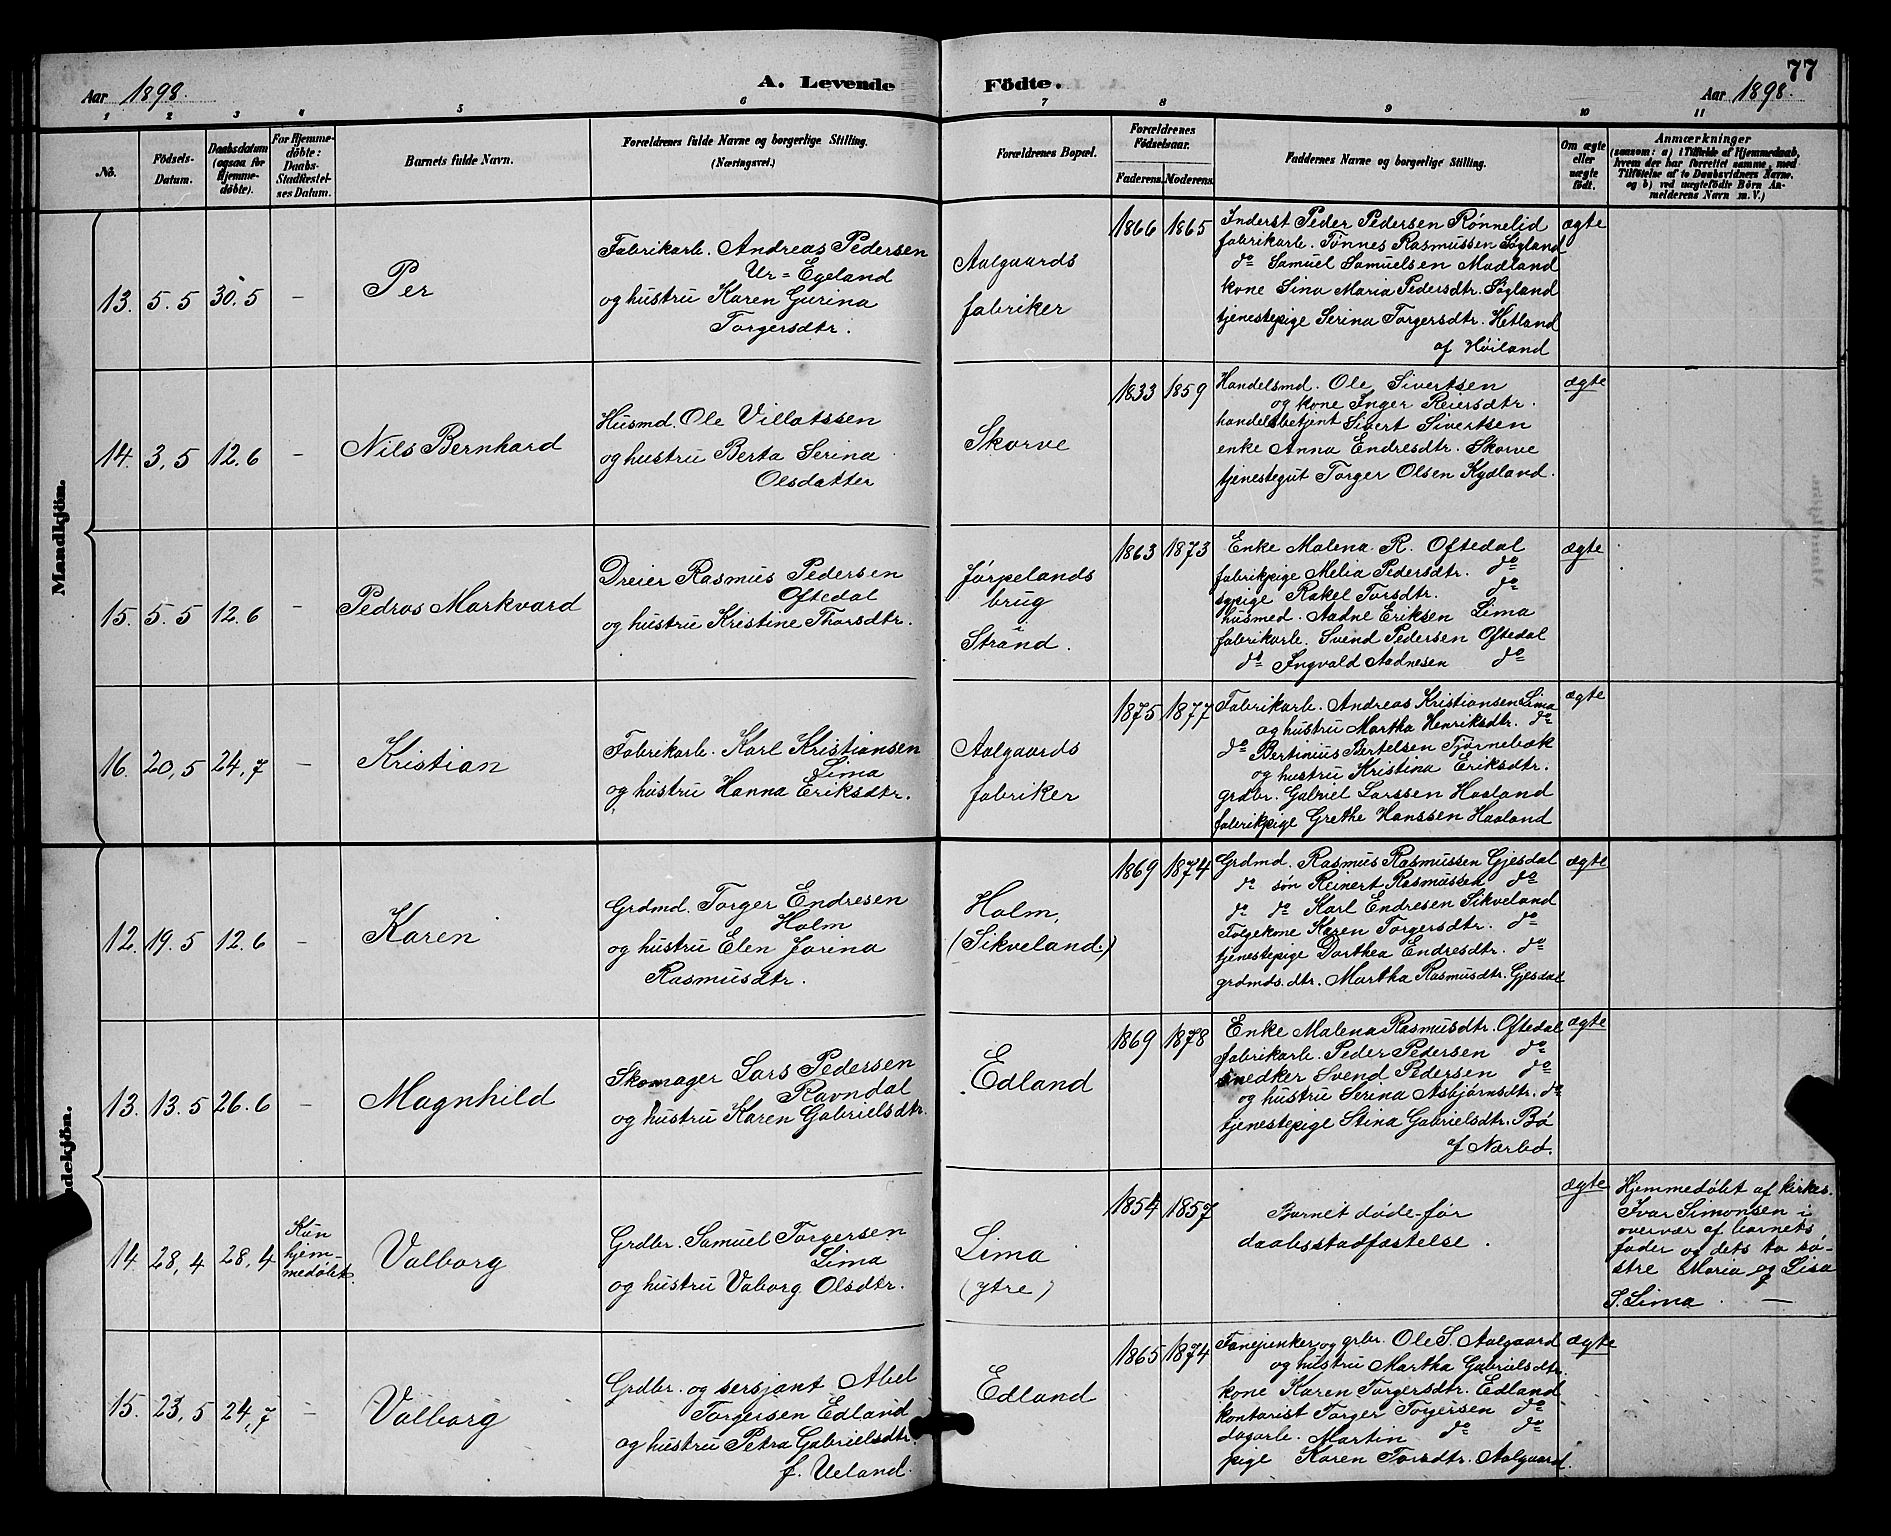 77
Aar 1898.
A. Levende
Födte.
Aar 1898.
1 2 3 4 5 6 7 8 9 10 11
No.
Födsels-
Datum.
Daabsdatum
(ogsaa for
Hjemme-
döbte).
For Hjemme-
döbte:
Daabs-
Stadfæstel-
ses Datum.
Barnets fulde Navn.
Forældrenes fulde Navne og borgerlige Stilling.
(Næringsvei.)
Forældrenes Bopæl.
Forældrenes
Födselsaar.
Faderens. Moderens.
Faddernes Navne og borgerlige Stilling.
Om ægte
eller
uægte
födt.
Anmærkninger
(saasom: a) i Tilfælde af Hjemmedaab,
hvem der har forrettet samme, med
Tilföielse af to Daabsvidners Navne.
og b) ved uægtefödte Börn An-
melderens Navn m. V.)
Mandkjön.
13. 5.5 30.5 — Per
Fabrikarb. Andreas Pedersen
Ur=Egeland
og hustru Karen Gurina
Torgersdtr.
Aalgaards
fabriker
1866 1865
Inderst Peder Pedersen Rønnelid
fabrikarb. Tønnes Rasmussen Søyland
do Samuel Samuelsen Madland
kone Sina Maria Pedersdtr. Søyland
tjenestepige Serina Torgersdtr. Hetland
af Høiland
ægte
14. 3,5 12.6 — Nils Bernhard
Husmd. Ole Villatssen
og hustru Berta Serina
Olsdatter
Skorve
1833 1859
Handelsmd. Ole Sivertsen
og kone Inger Reiersdtr.
handelsbetjent Sivert Sivertsen
enke Anna Endresdtr. Skorve
tjenestegut Torger Olsen Kydland.
ægte
15. 5.5 12.6 — Pedros Markvard
Dreier Rasmus Pedersen
Oftedal
og hustru Kristine Thorsdtr.
Jørpelands
brug
i
Strand.
1863 1873
Enke Malena R. Oftedal
fabrikpige Melia Pedersdtr. do
sypige Rakel Torsdtr. do
husmed. Aadne Eriksen Lima
fabrikarb. Svend Pedersen Oftedal
do Ingvald Aadnesen do
ægte
16. 20,5 24,7 — Kristian
Fabrikarb. Karl Kristiansen
Lima
og hustru Hanna Eriksdtr.
Aalgaards
fabriker
1875 1877
Fabrikarb. Andreas Kristiansen Lima
og hustru Martha Henriksdtr. do
do Bertinius Bertelsen Tjørnebæk
og hustru Kristina Eriksdtr.
grdbr. Gabriel Larssen Haaland
fabrikpige Grethe Hanssen Haaland
ægte
12. 19.5 12.6 — Karen
Grdmd. Torger Endresen
Holm
og hustru Elen Jorina
Rasmusdtr.
Holm,
(Sikveland.)
1869 1874
Grdmd. Rasmus Rasmussen Gjesdal
do søn Reinert Rasmussen do
do do Karl Endresen Sikveland
Følgekone Karen Torgersdtr. do
tjenestepige Dorthea Endresdtr. do
grdmds. dtr. Martha Rasmusdtr. Gjesdal
ægte
ndekjön.
13. 13.5 26.6 — Magnhild
Skomager Lars Pedersen
Ravndal
og hustru Karen Gabrielsdtr.
Edland
1869 1878
Enke Malena Rasmusdtr. Oftedal
fabrikarb. Peder Pedersen do
snedker Svend Pedersen do
og hustru Serina Asbjørnsdtr. do
tjenestepige Stina Gabrielsdtr. Bø
af Nærbø.
ægte
14 28,4 28,4
Kun
hjem-
medøbt.
Valborg
Grdbr. Samuel Torgersen
Lima
og hustru Vaborg Olsdtr.
Lima
(ytre)
1854 1857
Barnet døde før
daabsstadfæstelse.
ægte
Hjemmedøbt af kirkes.
Ivar Simonsen i
overvær af barnets
fader og dets to sø-
stre Maria og Lisa
S. Lima. —
15. 23,5 24,7 — Valborg
Grdbr. og sersjant Abel
Torgersen Edland
og hustru Petra Gabrielsdtr.
f. Ueland.
Edland
1865 1874
Fanejunker og grbr. Ole S. Aalgaard
og hustru Martha Gabrielsdtr.
kone Karen Torgersdtr. Edland
kontorist Torger Torgersen do
dagarb. Marten do do
pige Karen Torsdtr. Aalgaard.
ægte